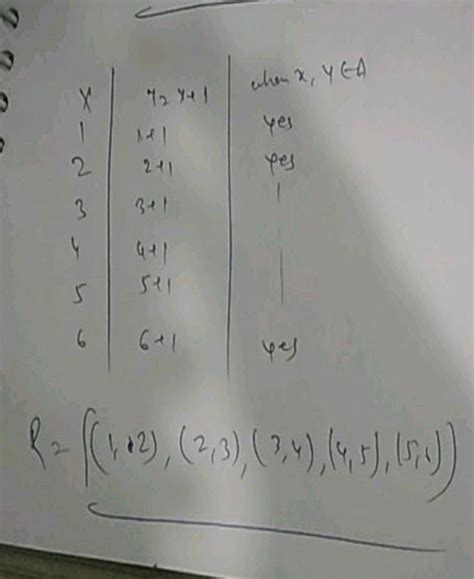 x y = x+1 when x, y ∈ A
1 1+1 yes
2 2+1 yes
3 3+1 |
4 4+1 |
5 5+1 |
6 6+1 yes
R = {(1, 2), (2, 3), (3, 4), (4, 5), (5, 6)}